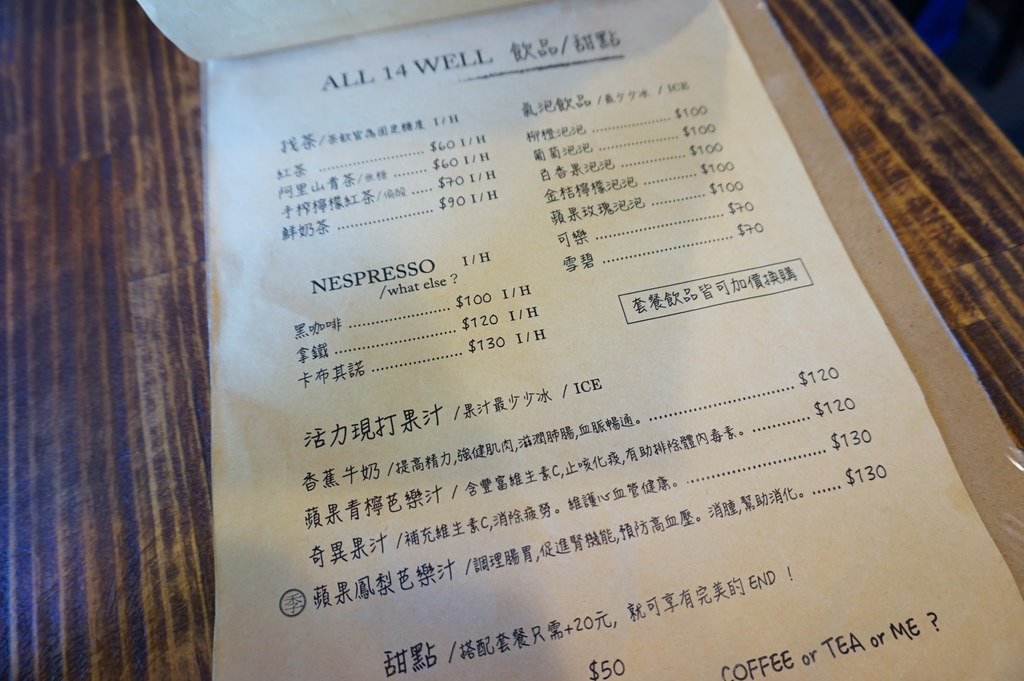 ALL 14 WELL 飲品/甜點
找茶/茶飲皆為固定糖度 I/H
紅茶 ........................ $60 I/H
阿里山青茶/無糖 ............ $60 I/H
手榨檸檬紅茶/偏酸 ..... $70 I/H
鮮奶茶 ........................ $90 I/H
NESPRESSO I/H
/what else?
黑咖啡 ........................ $100 I/H
拿鐵 ........................ $120 I/H
卡布其諾 ..................... $130 I/H
氣泡飲品 /最少少冰 / ICE
柳橙泡泡 ..................... $100
葡萄泡泡 ..................... $100
百香果泡泡 .................. $100
金桔檸檬泡泡 ............... $100
蘋果玫瑰泡泡 ............... $100
可樂 ........................ $70
雪碧 ........................ $70
套餐飲品皆可加價換購
活力現打果汁 /果汁最少少冰 / ICE
香蕉牛奶 /提高精力,強健肌肉,滋潤肺腸,血脈暢通。 ........................ $120
蘋果青檸芭樂汁 / 含豐富維生素C,止咳化痰,有助排除體內毒素。 ............ $120
奇異果汁 /補充維生素C,消除疲勞。維護心血管健康。 ........................ $130
季 蘋果鳳梨芭樂汁 /調理腸胃,促進腎機能,預防高血壓。消腫,幫助消化。 ...... $130
甜點 /搭配套餐只需+20元, 就可享有完美的 END !
$50
COFFEE or TEA or ME ?